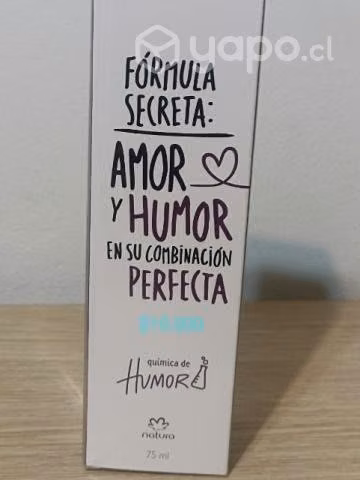 yapo.cl
FÓRMULA
SECRETA:
AMOR
Y HUMOR
EN SU COMBINACIÓN
PERFECTA
química de
HUMOR
natura
75 ml